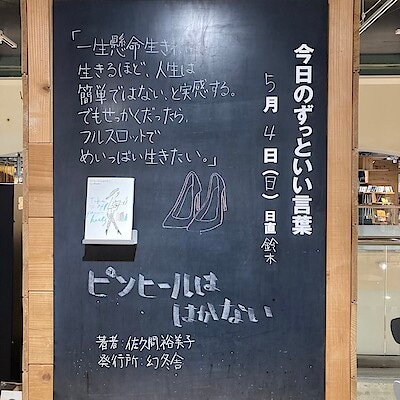 今日のずっといい言葉
5月4日(日) 日直 鈴木
「一生懸命生き
生きるほど、人生は
簡単ではない、と実感する。
でもせっかくだったら、
フルスロットで
めいっぱい生きたい。」
ピンヒールは
はかない
著者:佐久間裕美子
発行所:幻冬舎